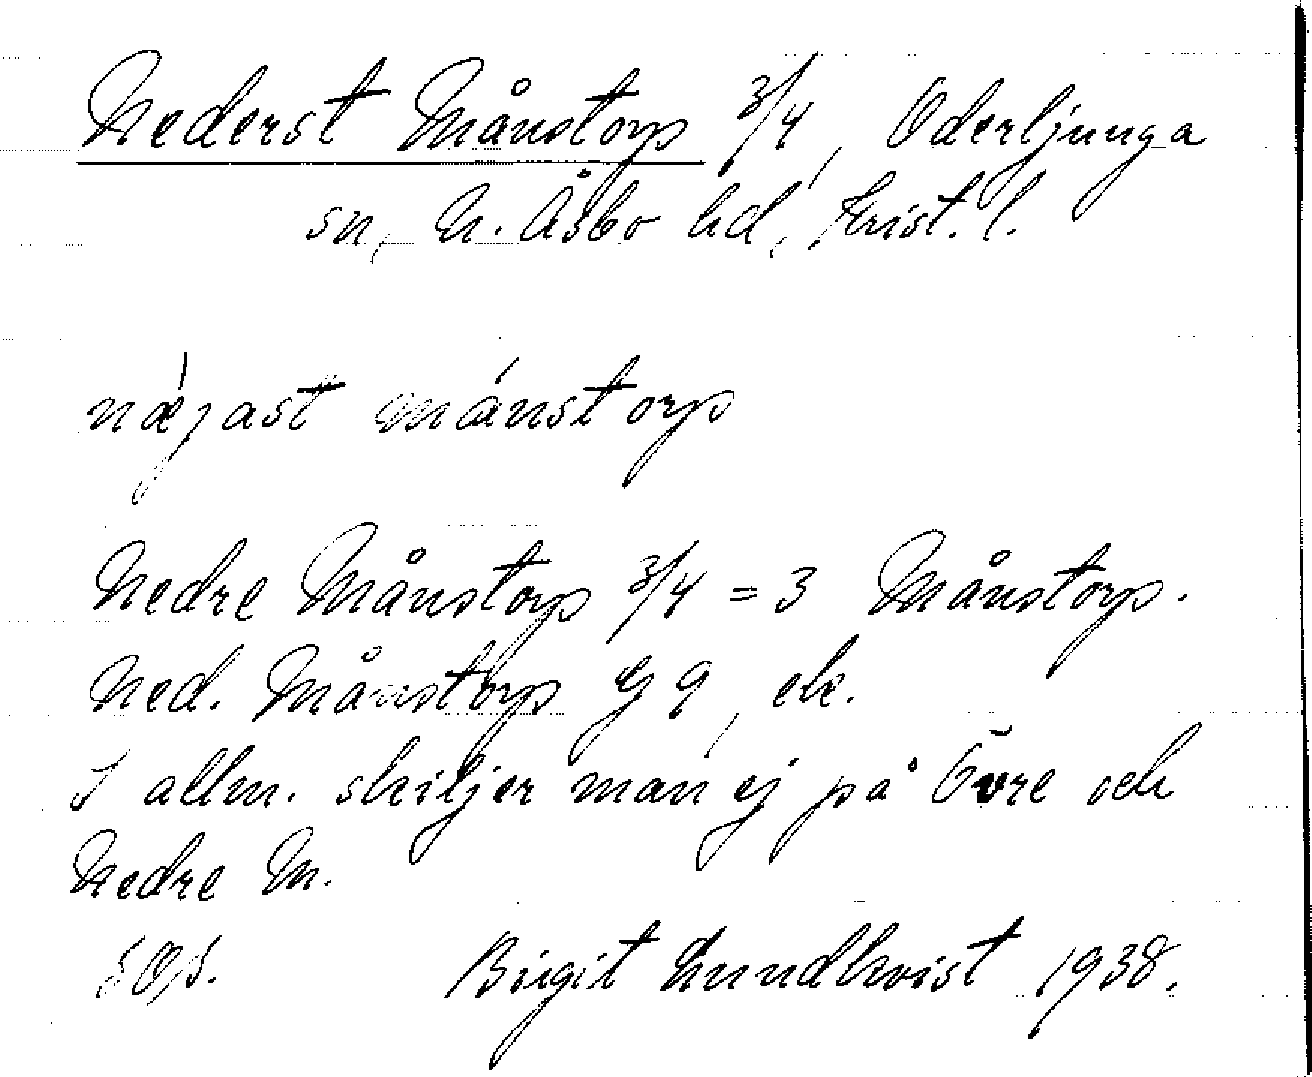 Nederst Månstorp 3/4, Oderljunga
sn, N. Åsbo hd, Krist. l.
næjast månstorp
Nedre Månstorp 3/4 = 3 Månstorp.
Ned. Månstorp G 9, ek.
I allm. skiljer man ej på Övre och
Nedre M.
Birgit Lundkvist 1938.